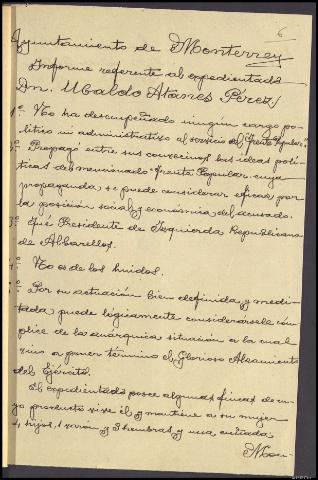 6
Ayuntamiento de Monterrey
Informe referente al expedientado
Dn. Ubaldo Atanes Pérez
1º No ha desempeñado ningún cargo po-
lítico ni administrativo al servicio del "Frente Popular".
2º Propagó entre sus convecinos las ideas polí-
ticas del mencionado "Frente Popular" cuya
propaganda se puede considerar eficaz por
la posición social y económica del acusado.
3º Fué Presidente de Izquierda Republicana
de Albarellos.
4º No es de los huidos.
5º Por su actuación bien definida y medi-
tada puede lógicamente considerársele cóm-
plice de la anárquica situación a la cual
vino a poner término el Glorioso Alzamiento
del Ejército.
El expedientado posee algunas fincas de cu-
yo producto vive él y mantiene a su mujer
hijos, 1 varón y 3 hembras y una cuñada
Mon-